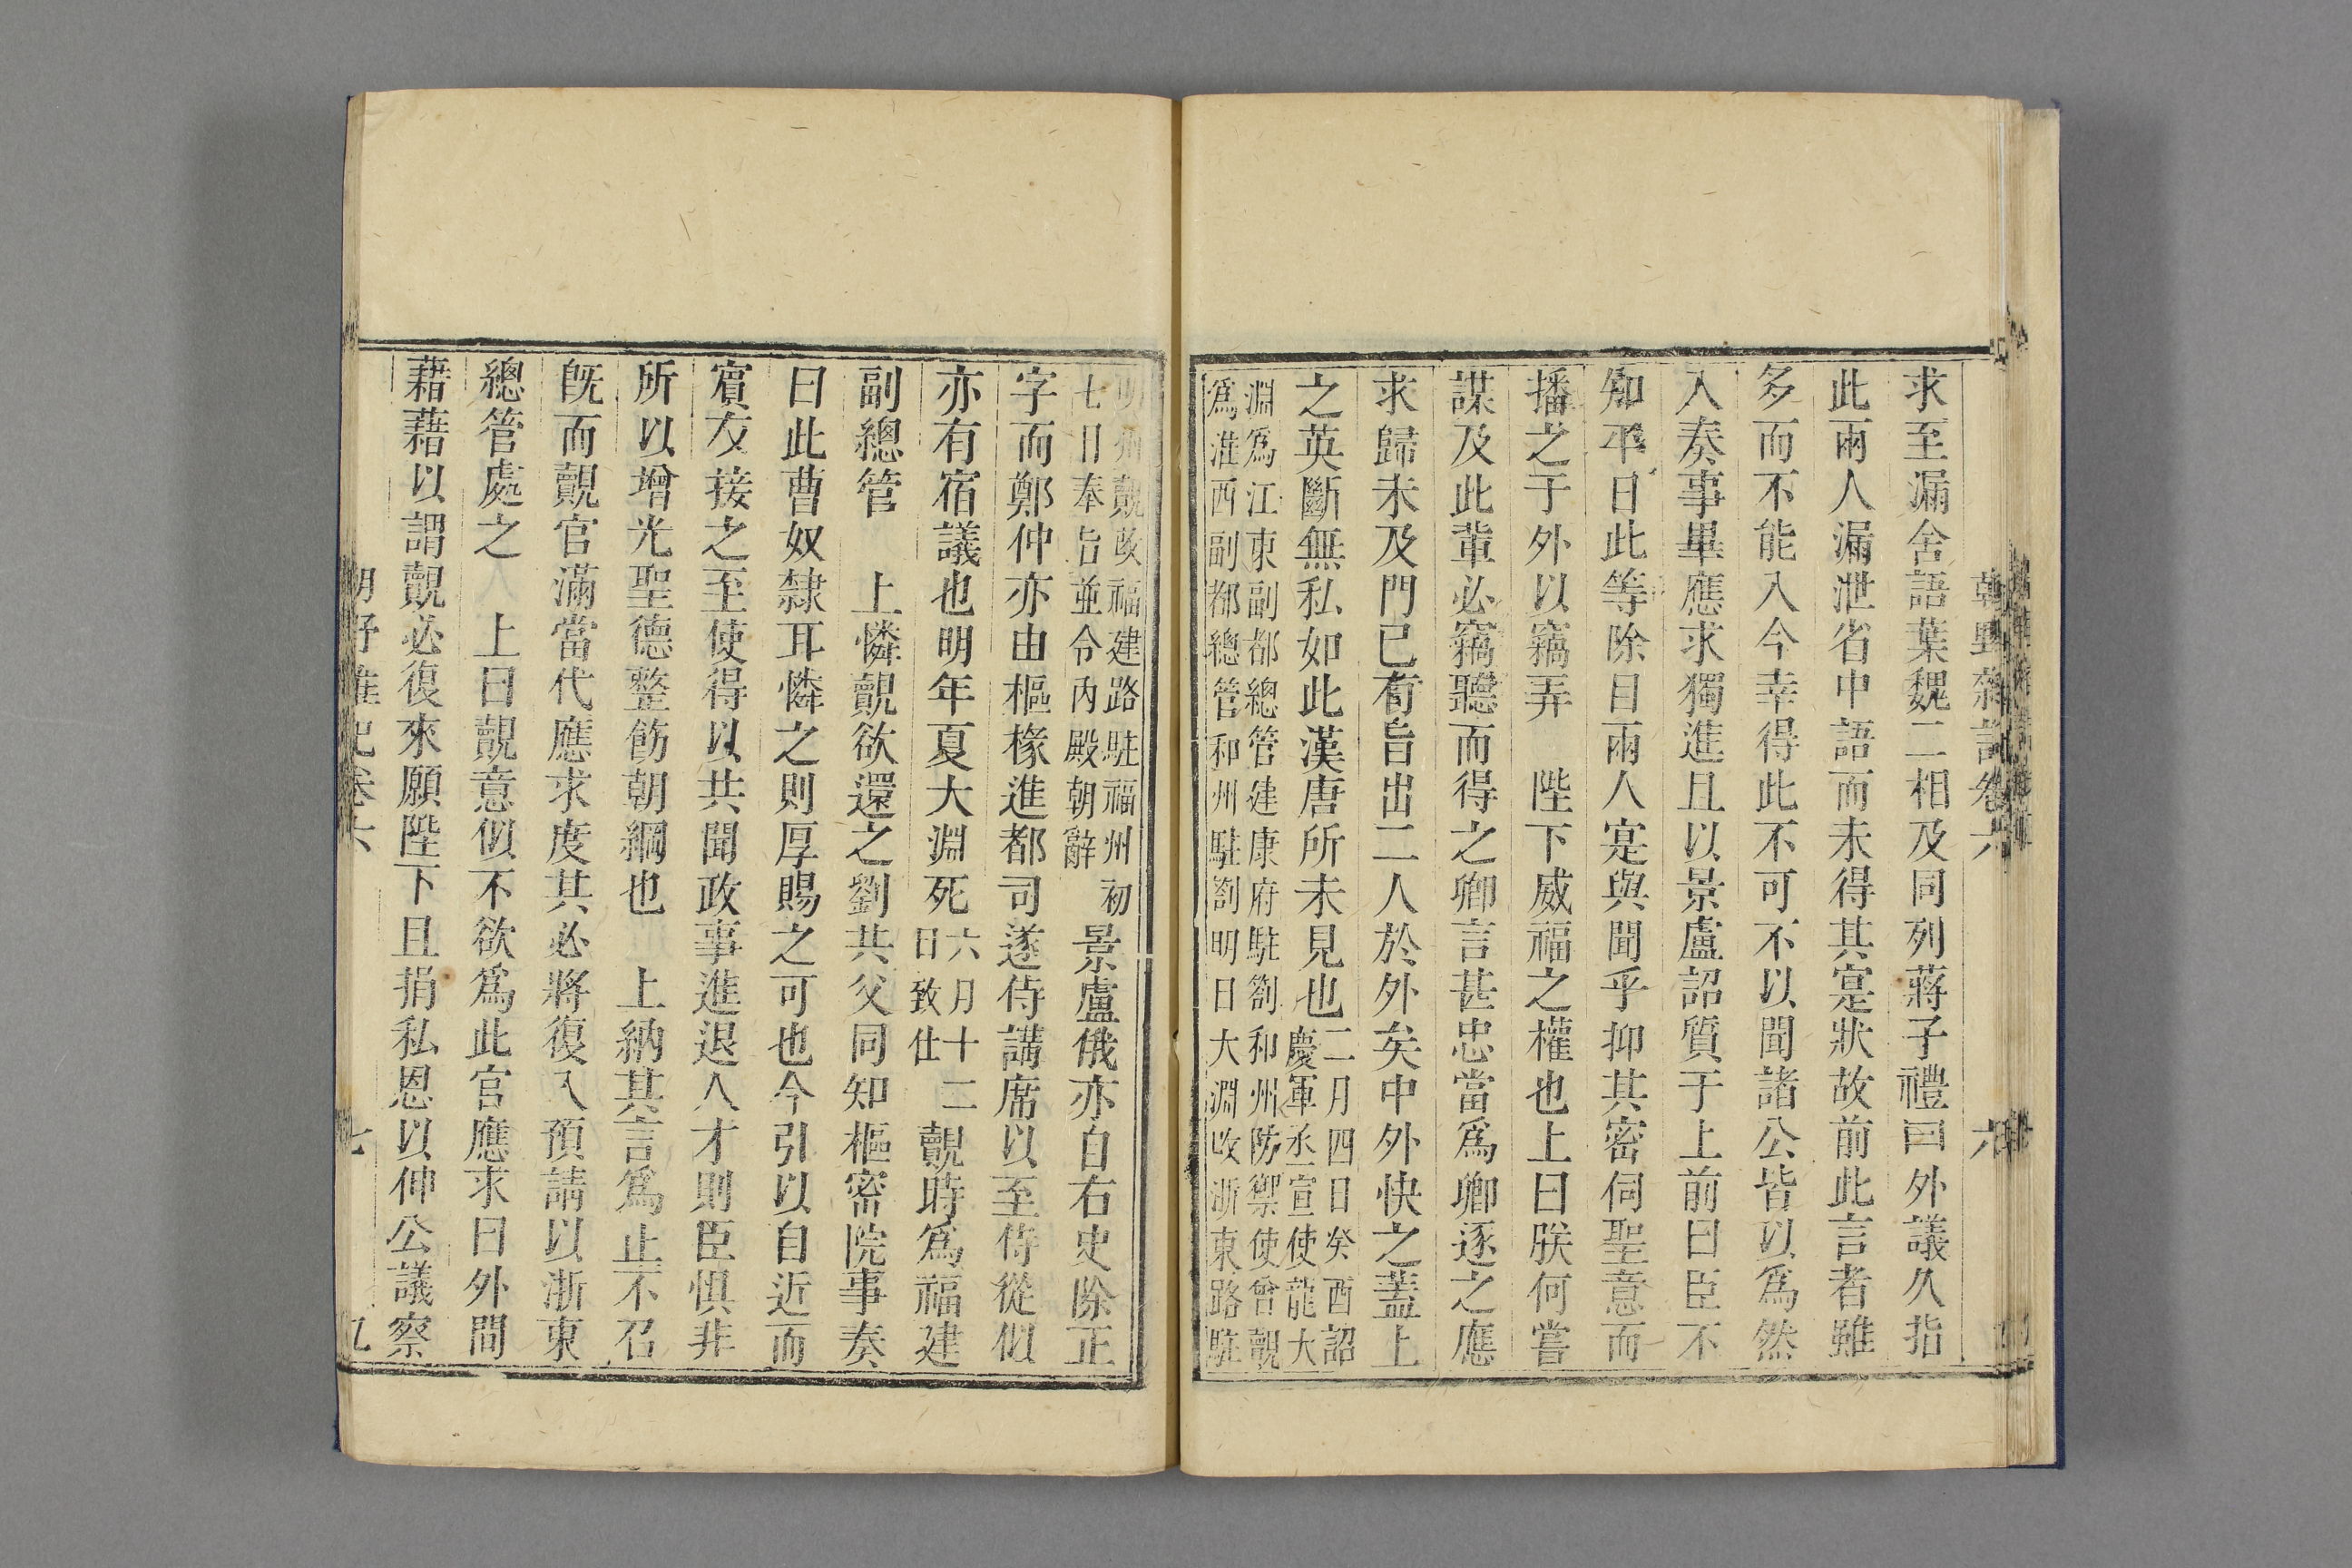 求至漏舍語葉魏二相及同列蔣子禮曰外議久指
此兩人漏泄省中語而未得其寔狀故前此言者雖
多而不能入今幸得此不可不以聞諸公皆以爲然
入奏事畢應求獨進且以景盧詔質于上前曰臣不
知平日此等除目兩人寔與聞乎抑其密伺聖意而
播之于外以竊弄　陛下威福之權也上曰朕何嘗
謀及此輩必竊聽而得之卿言甚忠當爲卿逐之應
求歸未及門已有旨出二人於外矣中外快之蓋上
之英斷無私如此漢唐所未見也二月四日癸酉詔
慶軍丞宣使龍大
淵爲江東副都總管建康府駐劄和州防禦使曾覿
爲淮西副都總管和州駐劄明日大淵改浙東路駐
明州覿改福建路駐福州初
七日奉旨並令內殿朝辭
景盧俄亦白右史除正
字而鄭仲亦由樞椽進都司遂侍講席以至侍從似
亦有宿議也明年夏大淵死六月十二
日致仕
覿時爲福建
副總管　上憐覿欲還之劉共父同知樞密院事奏
曰此曹奴隸耳憐之則厚賜之可也今引以自近而
賓友接之至使得以共聞政事進退人才則臣懼非
所以增光聖德整飭朝綱也　上納其言爲止不召
旣而覿官滿當代應求度其必將復入預請以浙東
總管處之　上曰覿意似不欲爲此官應求曰外間
藉藉以謂覿必復來願陛下且捐私恩以伸公議察
朝野雜記卷六
六
七